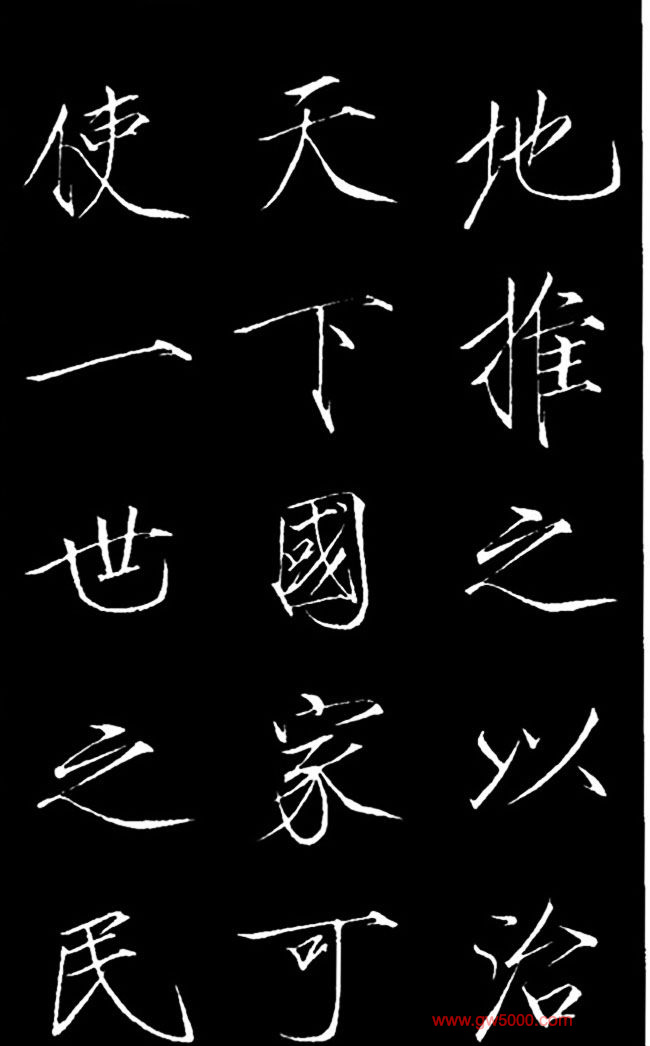 地推之以治
天下國家可
使一世之民
www.gw5000.com